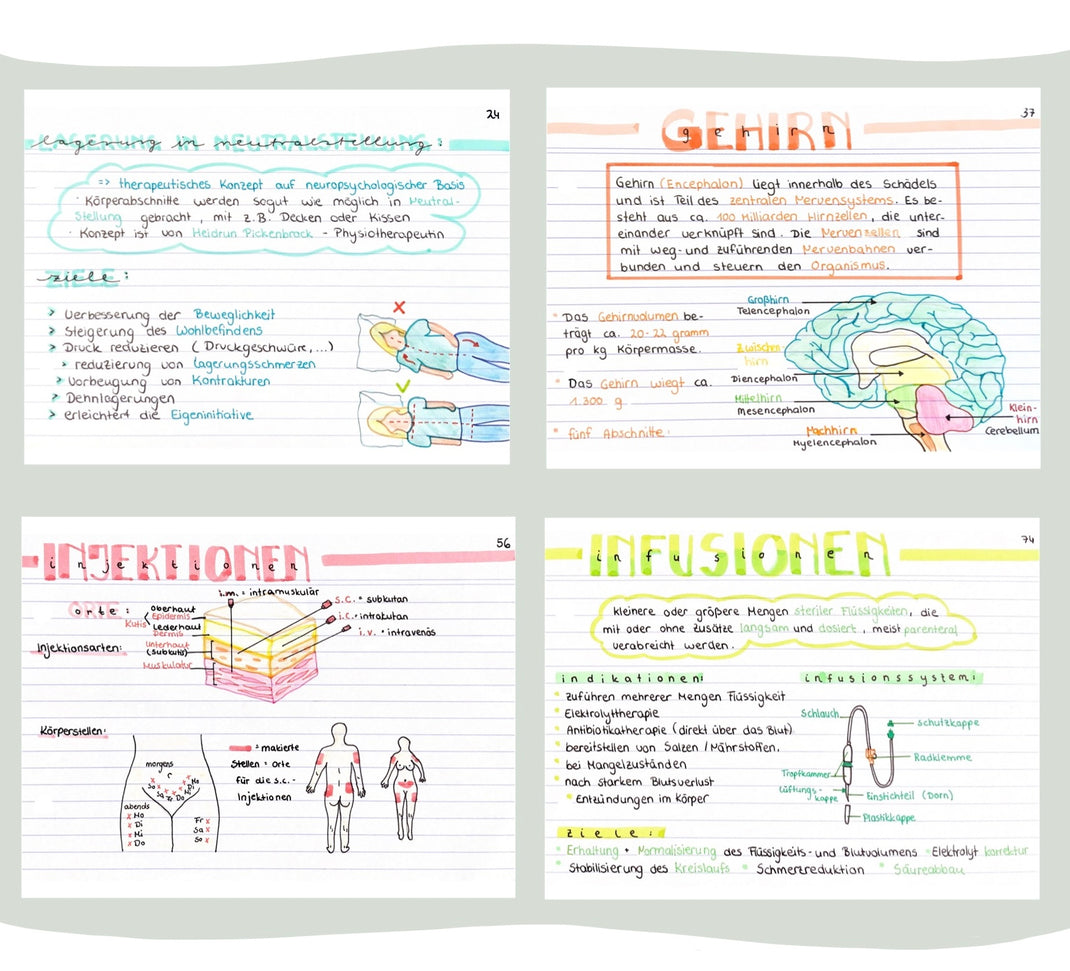 24
Lagerung in Neutralstellung:
=> therapeutisches Konzept auf neuropsychologischer Basis
· Körperabschnitte werden sogut wie möglich in Neutral-
Stellung gebracht, mit z.B. Decken oder Kissen
· Konzept ist von Heidrun Pickenbrock - Physiotherapeutin
Ziele:
> Verbesserung der Beweglichkeit
> Steigerung des Wohlbefindens
> Druck reduzieren (Druckgeschwüre,...)
> reduzierung von Lagerungsschmerzen
> Vorbeugung von Kontrakturen
> Dehnlagerungen
> erleichtert die Eigeninitiative
37
GEHIRN
gehirn
Gehirn (Encephalon) liegt innerhalb des Schädels
und ist Teil des zentralen Nervensystems. Es be-
steht aus ca. 100 Milliarden Hirnzellen, die unter-
einander verknüpft sind. Die Nervenzellen sind
mit weg- und zuführenden Nervenbahnen ver-
bunden und steuern den Organismus.
* Das Gehirnvolumen be-
trägt ca. 20-22 gramm
pro kg Körpermasse.
* Das Gehirn wiegt ca.
1.300 g.
* fünf Abschnitte:
Großhirn
Telencephalon
Zwischen-
hirn
Diencephalon
Mittelhirn
Mesencephalon
Nachhirn
Myelencephalon
Klein-
hirn
Cerebellum
56
INJEKTIONEN
injektionen
orte:
Injektionsarten:
Kutis
Oberhaut
Epidermis
Lederhaut
Dermis
Unterhaut
(Subkutis)
Muskulatur
i.m. = intramuskulär
s.c. = subkutan
i.c. = intrakutan
i.v. = intravenös
Körperstellen:
morgens
So
Sa
Fr
Do
Mi
Di
Mo
abends
x Mo
x Di
x Mi
x Do
Fr x
Sa x
So x
= makierte
Stellen = Orte
für die s.c.-
Injektionen
74
INFUSIONEN
infusionen
kleinere oder größere Mengen steriler Flüssigkeiten, die
mit oder ohne Zusätze langsam und dosiert, meist parenteral
verabreicht werden.
indikationen:
* zuführen mehrerer Mengen Flüssigkeit
* Elektrolyttherapie
* Antibiotikatherapie (direkt über das Blut)
* bereitstellen von Salzen / Nährstoffen,
* bei Mangelzuständen
* nach starkem Blutverlust
* Entzündungen im Körper
infusionssystem:
Schlauch
Schutzkappe
Radklemme
Tropfkammer
Lüftungs-
kappe
Einstichteil (Dorn)
Plastikkappe
ziele:
* Erhaltung + Normalisierung des Flüssigkeits- und Blutvolumens * Elektrolyt korrektur
Stabilisierung des Kreislaufs * Schmerzreduktion * Säureabbau